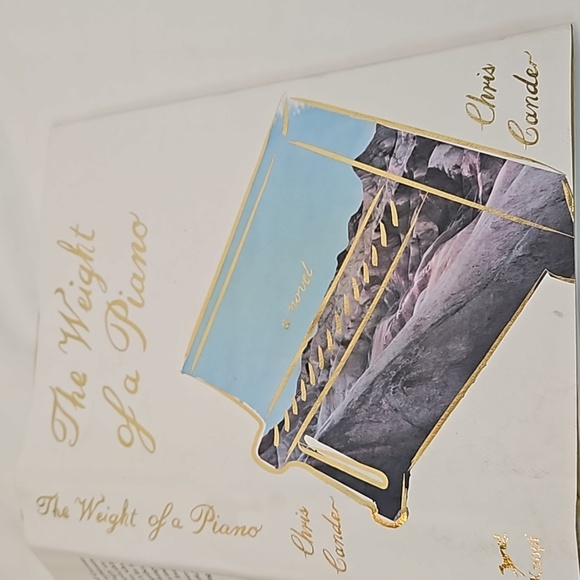 The Weight
of a Piano
a novel
Chris
Cander
The Weight of a Piano
Chris
Cander